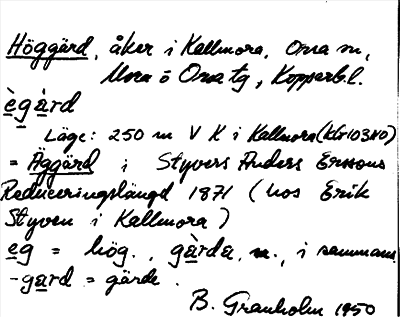 Höggärd, åker i Kallmora, Orsa sn,
Mora o Orsa tg, Kopparb.l.
ègàrd
Läge: 250 m V K i Kallmora
= Äggärd i Styvers Anders Erssons
Reduceringslängd 1871 (hos Erik
Styven i Kallmora)
eg = hög., gàrda, n., i samman
-gard = gärde.
B. Granholm 1950